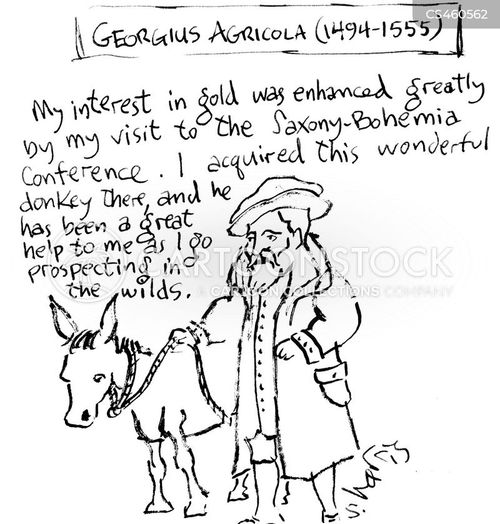 CS460562
GEORGIUS AGRICOLA (1494-1555)
My interest in gold was enhanced greatly
by my visit to the Saxony-Bohemia
Conference. I acquired this wonderful
donkey there, and he
has been a great
help to me as I go
prospecting in
the wilds.
CARTOONSTOCK
CARTOON COLLECTIONS COMPANY
S. Harris